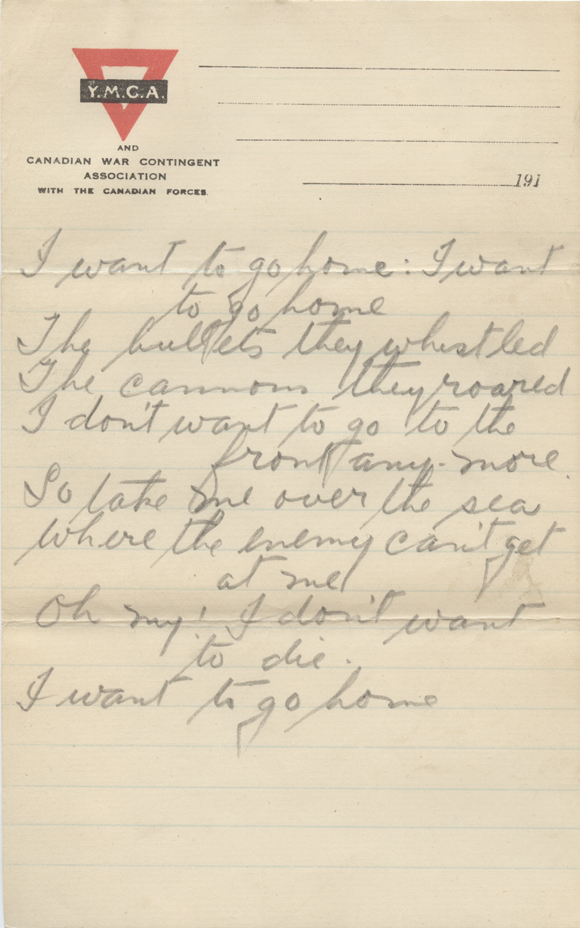 Y.M.C.A.
AND
CANADIAN WAR CONTINGENT
ASSOCIATION
WITH THE CANADIAN FORCES.
191
I want to go home: I want
to go home
The bullets they whistled
The cannons they roared
I don't want to go to the
front any-more.
So take me over the sea
Where the enemy can't get
at me
Oh my! I don't want
to die.
I want to go home